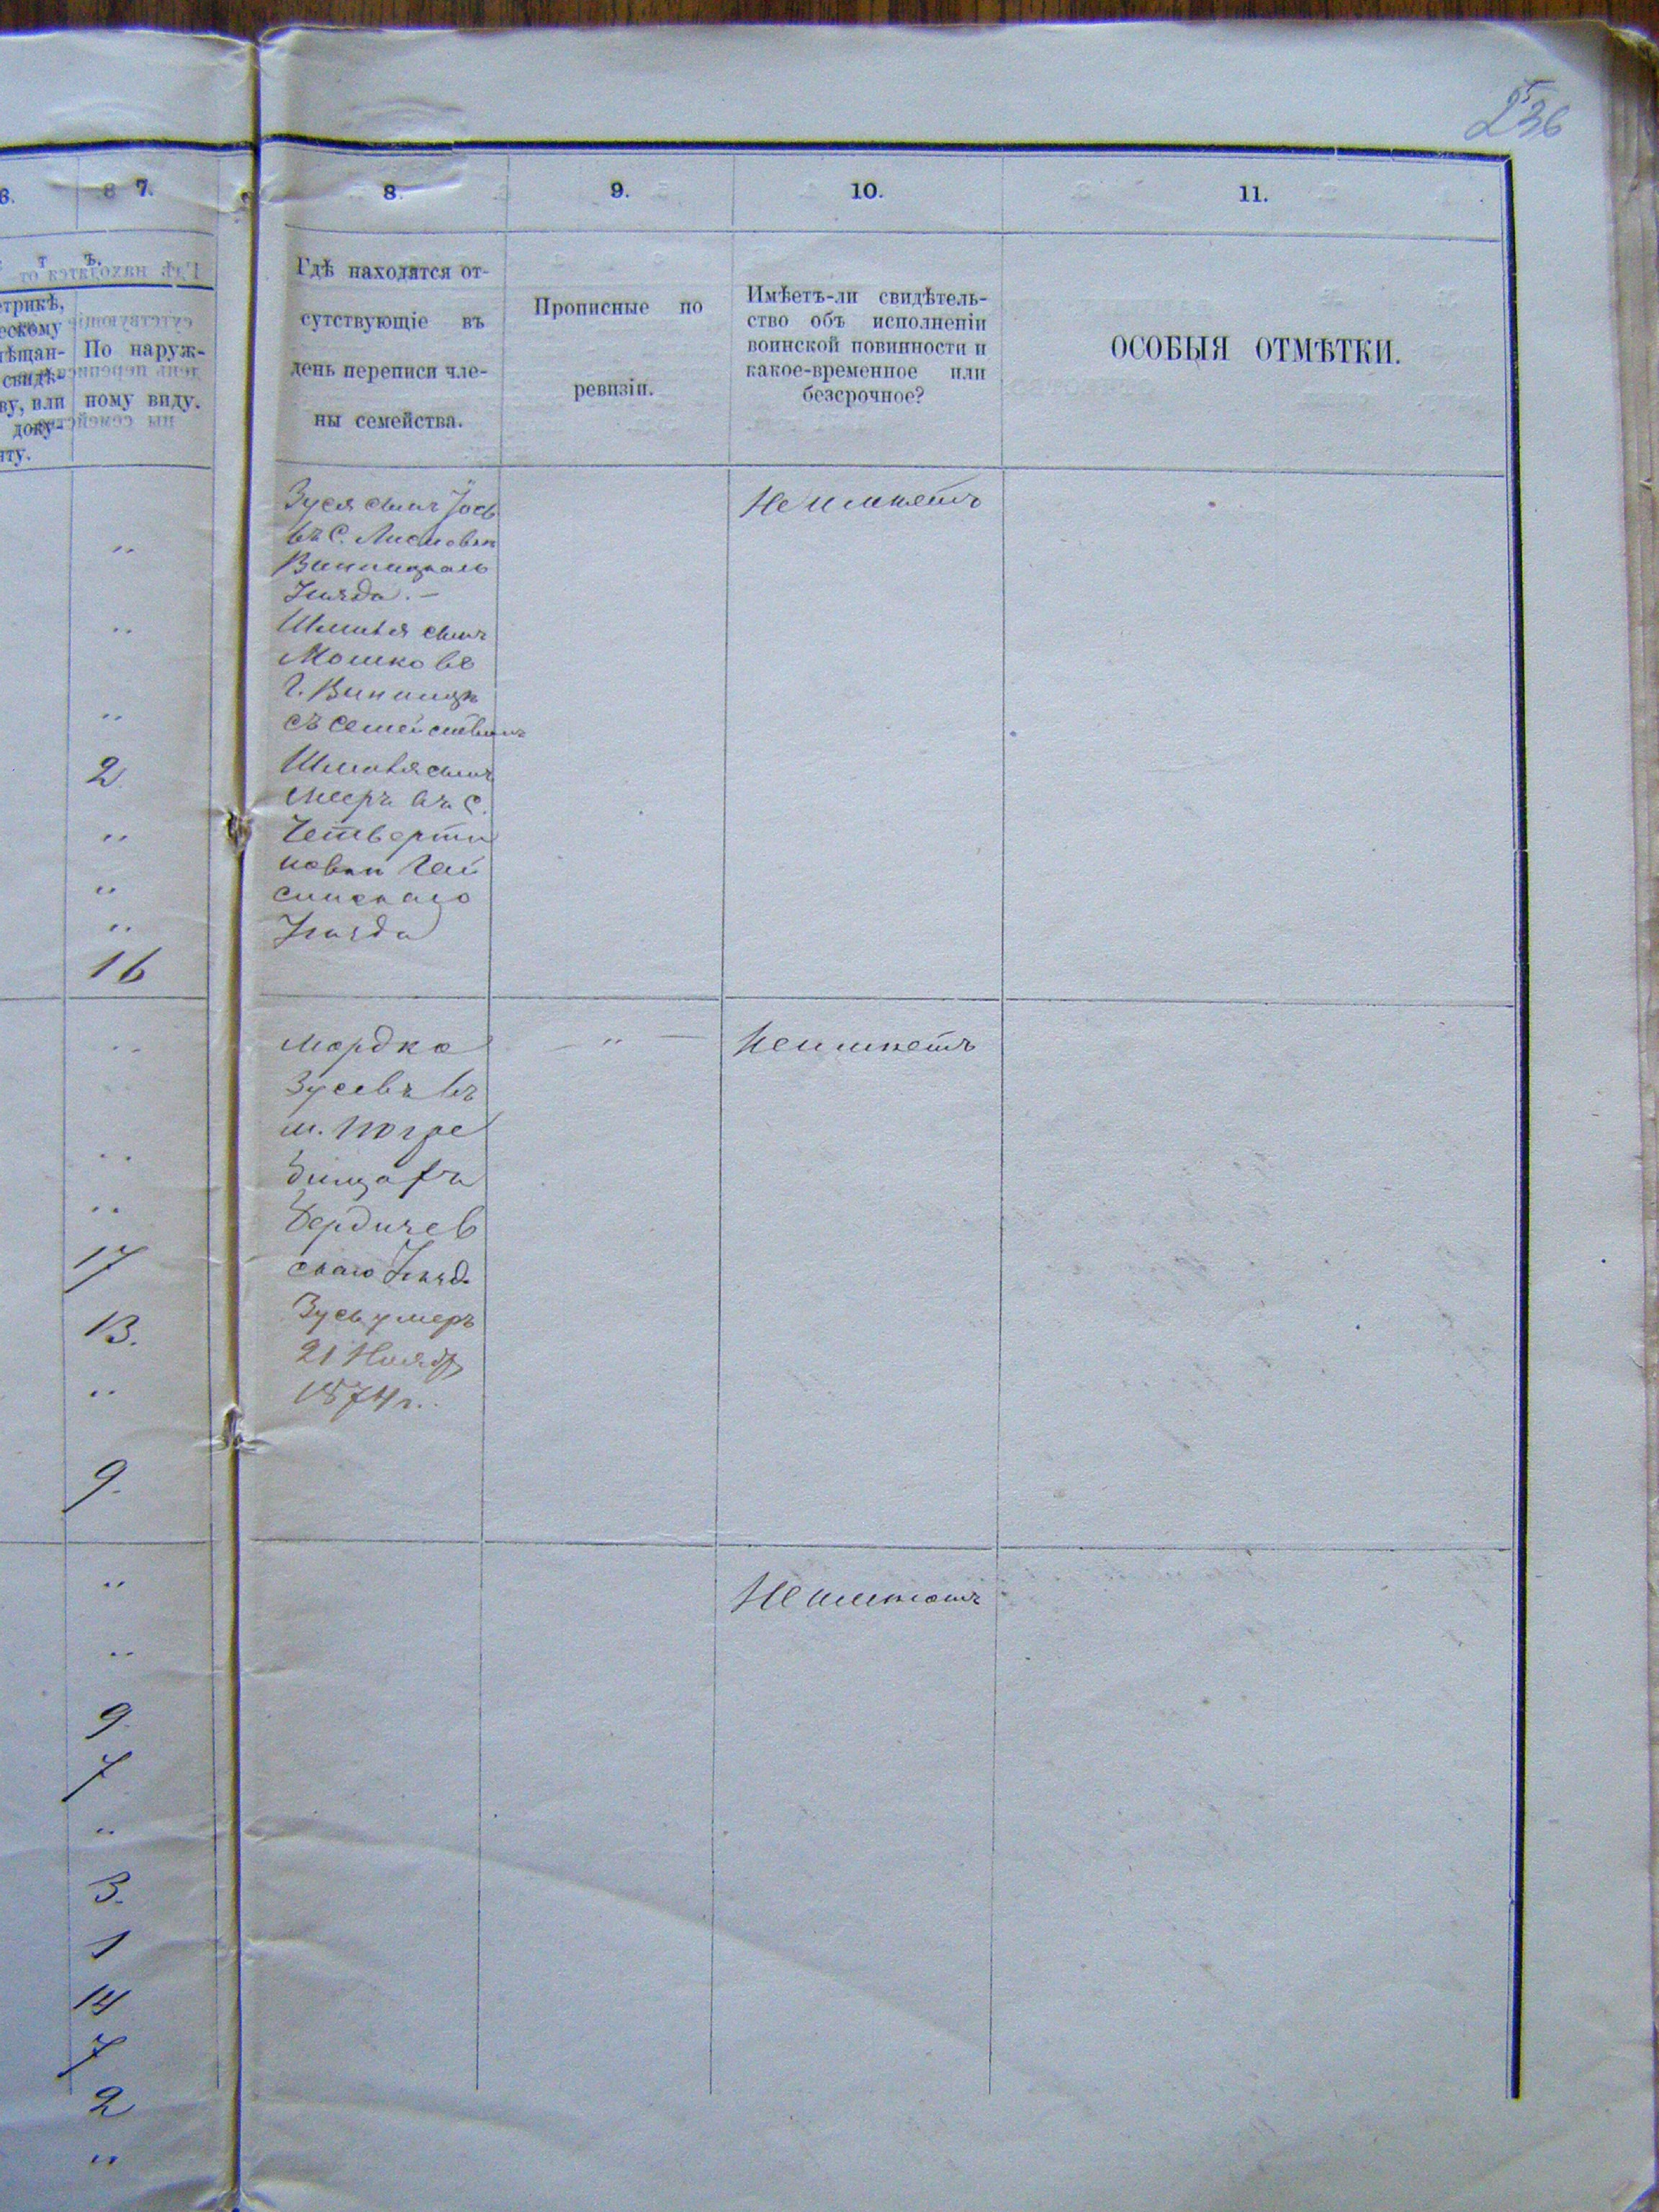 236
6.
7.
8
9.
10.
11.
т ъ.
етрикѣ,
ескому
ѣщан-
свидѣ-
ву, или
доку-
нту.
По наруж-
ному виду.
Гдѣ находятся от-
сутствующіе въ
день переписи чле-
ны семейства.
Прописные по
ревизіи.
Имѣетъ-ли свидѣтель-
ство объ исполненіи
воинской повинности и
какое-временное или
безсрочное?
ОСОБЫЯ ОТМѢТКИ.
"
"
"
2
"
"
"
16
Зуся сынъ Іось
въ С.
Винницкаго
Уѣзда. –
сынъ
Мошко въ
г. Винницѣ
съ семействомъ
сынъ
Мееръ въ С.
Четверти
новки Гай
синскаго
Уѣзда
Не имѣетъ
"
"
"
17
13.
"
9.
Мордко
Зусевъ въ
м. Погре
бищахъ
Бердичев
скаго Уѣзд.
Зусь умеръ
21 Ноябр
1874 г.
— " —
Неимѣетъ
"
"
9.
7
"
3.
1
14
7
2
"
Не имѣютъ